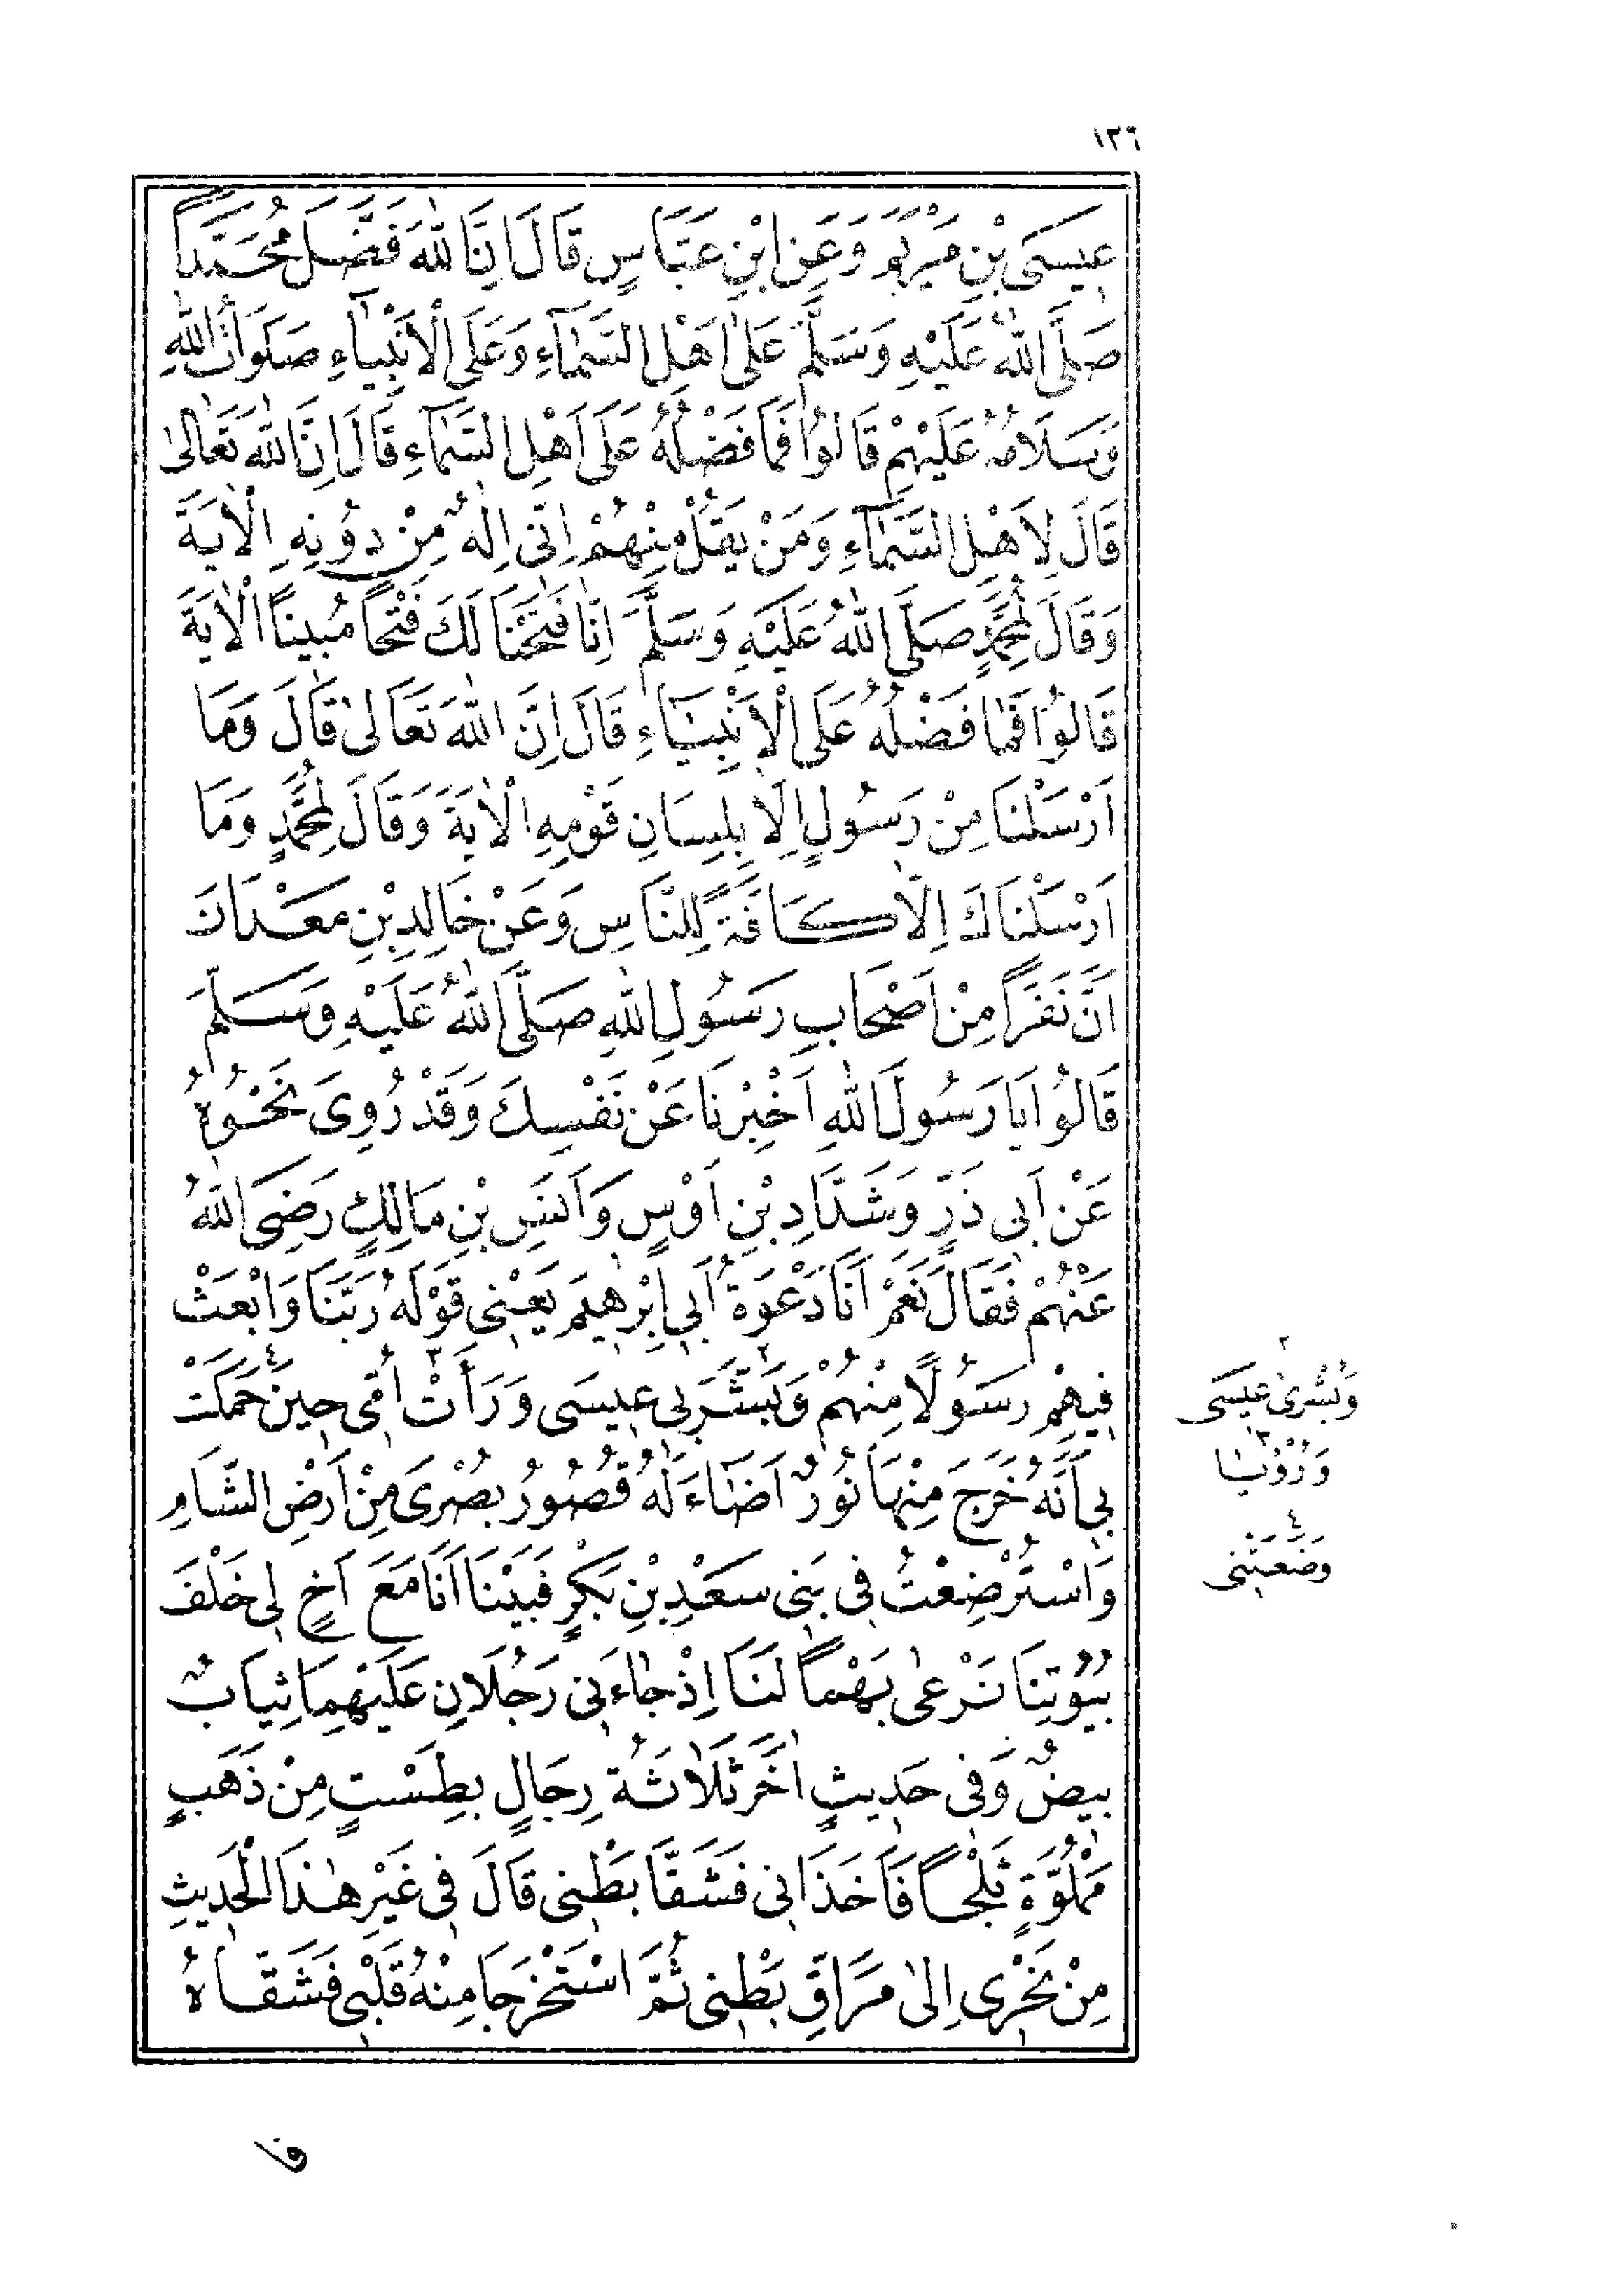 ١٣٦
عِيسَى بْنِ مَرْيَمَ وَعَنِ ابْنِ عَبَّاسٍ قَالَ اِنَّ اللهَ فَضَّلَ مُحَمَّدًا
صَلَّى اللهُ عَلَيْهِ وَسَلَّمَ عَلٰى اَهْلِ السَّمَاءِ وَعَلَى الْاَنْبِيَاءِ صَلَوَاتُ اللهِ
وَسَلَامُهُ عَلَيْهِمْ قَالُوا فَمَا فَضْلُهُ عَلَى اَهْلِ السَّمَاءِ قَالَ اِنَّ اللهَ تَعَالٰى
قَالَ لِاَهْلِ السَّمَاءِ وَمَنْ يَقُلْ مِنْهُمْ اِنِّى اِلٰهٌ مِنْ دُونِهِ الْاٰيَةَ
وَقَالَ لِمُحَمَّدٍ صَلَّى اللهُ عَلَيْهِ وَسَلَّمَ اِنَّا فَتَحْنَا لَكَ فَتْحًا مُبِينًا الْاٰيَةَ
قَالُوا فَمَا فَضْلُهُ عَلَى الْاَنْبِيَاءِ قَالَ اِنَّ اللهَ تَعَالٰى قَالَ وَمَا
اَرْسَلْنَا مِنْ رَسُولٍ اِلَّا بِلِسَانِ قَوْمِهِ الْاٰيَةَ وَقَالَ لِمُحَمَّدٍ وَمَا
اَرْسَلْنَاكَ اِلَّا كَافَّةً لِلنَّاسِ وَعَنْ خَالِدِ بْنِ مَعْدَانَ
اَنَّ نَفَرًا مِنْ اَصْحَابِ رَسُولِ اللهِ صَلَّى اللهُ عَلَيْهِ وَسَلَّمَ
قَالُوا يَا رَسُولَ اللهِ اَخْبِرْنَا عَنْ نَفْسِكَ وَقَدْ رُوِىَ نَحْوُهُ
عَنْ اَبِى ذَرٍّ وَشَدَّادِ بْنِ اَوْسٍ وَاَنَسِ بْنِ مَالِكٍ رَضِىَ اللهُ
عَنْهُمْ فَقَالَ نَعَمْ اَنَا دَعْوَةُ اَبِى اِبْرٰهِيمَ يَعْنِى قَوْلَهُ رَبَّنَا وَابْعَثْ
فِيهِمْ رَسُولًا مِنْهُمْ وَبَشَّرَ بِى عِيسَى ٢ وَرَأَتْ ٣ اُمِّى حِينَ ٤ حَمَلَتْ
بِى اَنَّهُ خَرَجَ مِنْهَا نُورٌ اَضَاءَ لَهُ قُصُورُ بُصْرَى مِنْ اَرْضِ الشَّامِ
وَاسْتُرْضِعْتُ فِى بَنِى سَعْدِ بْنِ بَكْرٍ فَبَيْنَا اَنَا مَعَ اَخٍ لِى خَلْفَ
بُيُوتِنَا نَرْعٰى بَهْمًا لَنَا اِذْ جَاءَنِى رَجُلَانِ عَلَيْهِمَا ثِيَابٌ
بِيضٌ وَفِى حَدِيثٍ اٰخَرَ ثَلَاثَةُ رِجَالٍ بِطَسْتٍ مِنْ ذَهَبٍ
مَمْلُوَّةٍ ثَلْجًا فَاَخَذَانِى فَشَقَّا بَطْنِى قَالَ فِى غَيْرِ هٰذَا الْحَدِيثِ
مِنْ نَحْرِى اِلٰى مَرَاقِّ بَطْنِى ثُمَّ اسْتَخْرَجَا مِنْهُ قَلْبِى فَشَقَّاهُ
٢
وَبُشْرٰى عِيسَى
٣
وَرُؤْيَا
٤
وَضَعَتْنِى
فا